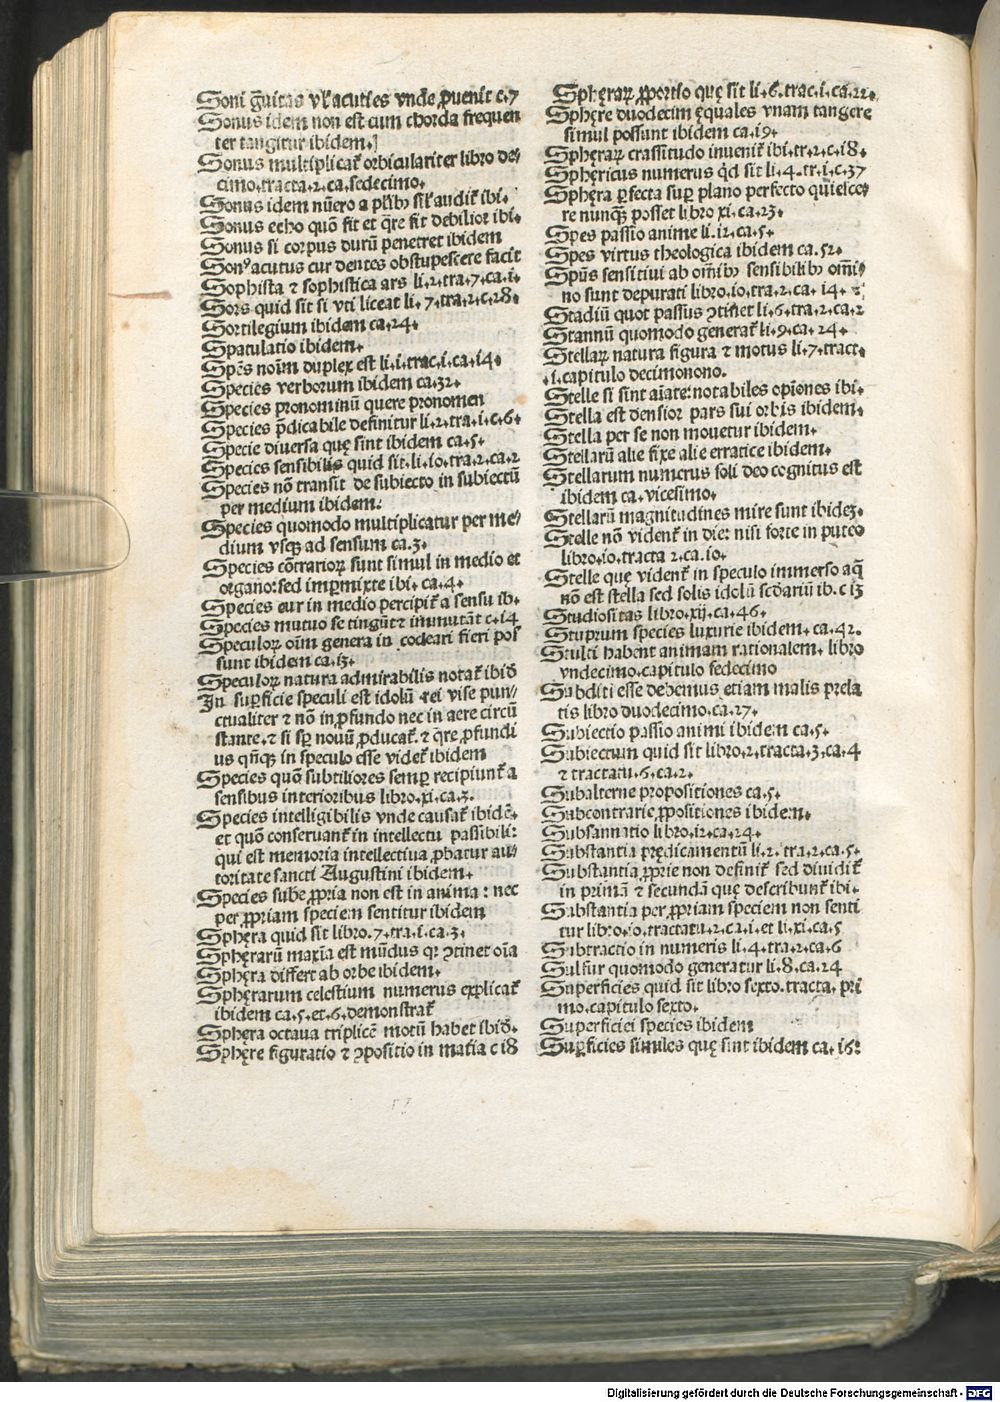 Soni gͣuitas vl̕ acuties vnde ꝓuenit c.7
Sonus idem non est cum chorda frequen
ter tangitur ibidem.
Sonus multiplicat̕ orbiculariter libro de⸗
cimo.tracta.2.ca.sedecimo.
Sonus idem nũero a pl̕ib⁊ sil̕ audit̕ ibi.
Sonus echo quõ fit et q̃re fit debilior ibi.
Sonus si corpus durũ penetret ibidem
Sonꝰ acutus cur dentes obstupescere facit
Sophista ⁊ sophistica ars li.2.tra.7.ca.i.
Sors quid sit si vti liceat li.7.tra.2.c.28.
Sortilegium ibidem ca.24.
Spatulatio ibidem.
Spẽs noĩm duplex est li.i.trac.i.ca.i4.
Species verborum ibidem ca.32.
Species pronominũ quere pronomen
Species p̃dicabile definitur li.2.tra.i.c.6.
Specie diuersa quę sint ibidem ca.5.
Species sensibilis quid sit.li.io.tra.2.ca.2
Species nõ transit de subiecto in subiectũ
per medium ibidem.
Species quomodo multiplicatur per me⸗
dium vsqꝫ ad sensum ca.3.
Species cõtrarioꝝ sunt simul in medio et
organo:sed imꝑmixte ibi. ca.4.
Species cur in medio percipit̕ a sensu ib.
Species mutuo se tingũt ⁊ immutãt c.i4
Speculoꝝ oĩm genera in cocleari fieri pos
sunt ibidem ca.i3.
Speculoꝝ natura admirabilis notat̕ ibid̃
In suꝑficie speculi est idolũ rei vise pun⸗
ctualiter ⁊ nõ in ꝓfundo nec in aere circũ
stante.⁊ si sꝑ nouũ ꝓducat̕.⁊ q̃re ꝓfundi
us qñqꝫ in speculo esse videt̕ ibidem
Species quõ subtiliores semꝑ recipiunt̕ a
sensibus interioribus libro.xi.ca.3.
Species intelligibilis vnde causat̕ ibidẽ.
et quõ conseruant̕ in intellectu passibili:
qui est memoria intellectiua ꝓbatur au⸗
toritate sancti Augustini ibidem.
Species sube ꝓpria non est in anima: nec
per ꝓpriam speciem sentitur ibidem
Sphęra quid sit libro.7.tra.i.ca.3.
Sphęrarũ maxĩa est mũdus qꝛ ꝯtinet oĩa
Sphęra differt ab orbe ibidem.
Sphęrarum celestium numerus explicat̕
ibidem ca.5.et.6.demonstrat̕
Sphęra octaua triplicẽ motũ habet ibid̃.
Sphęre figuratio ⁊ ꝯpositio in mat̃ia c i8
Sphęraꝝ ꝓportio quę sit li.6.trac.i.ca.22.
Sphęre duodecim ęquales vnam tangere
simul possunt ibidem ca.i9.
Sphęraꝝ crassitudo inuenit̕ ibi.tr.2.c.i8.
Sphęricus numerus q̇d sit li.4.tr.i.c.37
Sphęra ꝑfecta suꝑ plano perfecto quiesce⸗
re nunqꝫ̃ posset libro xi.ca.23.
Spes passio anime li.i2.ca.5.
Spes virtus theologica ibidem ca.52.
Spũs sensitiui ab om̃ib⁊ sensibilib⁊ om̃i⸗
no sunt depurati libro.io.tra.2.ca. i4.
Stadiũ quot passus ꝯtinet li.6.tra.2.ca.2
Stannũ quomodo generat̕ li.9.ca. 24.
Stellaꝝ natura figura ⁊ motus li.7.tract.
.i.capitulo decimonono.
Stelle si sint aĩate:notabiles opĩones ibi.
Stella est densior pars sui orbis ibidem.
Stella per se non mouetur ibidem.
Stellarũ alie fixe alie erratice ibidem.
Stellarum numerus soli deo cognitus est
ibidem ca.vicesimo.
Stellarũ magnitudines mire sunt ibideꝫ.
Stelle nõ vident̕ in die: nisi forte in puteo
libro.io.tracta 2.ca.io.
Stelle que vident̕ in speculo immerso aq̃
nõ est stella sed solis idolũ scd̃ariũ ib.c i3
Studiositas libro.xij.ca.46.
Stuprum species luxurie ibidem.ca.42.
Stulti habent animam rationalem. libro
vndecimo.capitulo sedecimo
Subditi esse debemus etiam malis prela
tis libro duodecimo.ca.27.
Subiectio passio animi ibidem ca.5.
Subiectum quid sit libro.2.tracta.3.ca.4
⁊ tractatu.6.ca.2.
Subalterne propositiones ca.5.
Subcontrarie ꝓpositiones ibidem.
Subsannatio libro.i2.ca.24.
Substantia prędicamentũ li.2. tra.2.ca.5.
Substantia ꝓprie non definit̕ sed diuidit̕
in primã ⁊ secundã quę describunt̕ ibi.
Substantia per ꝓpriam speciem non senti
tur libro.io.tractatu.2.ca.i.et li.xi.ca.5
Subtractio in numeris li.4.tra.2.ca.6
Sulfur quomodo generatur li.8.ca.24
Superficies quid sit libro sexto.tracta. pri
mo.capitulo sexto.
Superficiei species ibidem
Suꝑficies similes quę sint ibidem ca. i6:
Digitalisierung gefördert durch die Deutsche Forschungsgemeinschaft - DFG